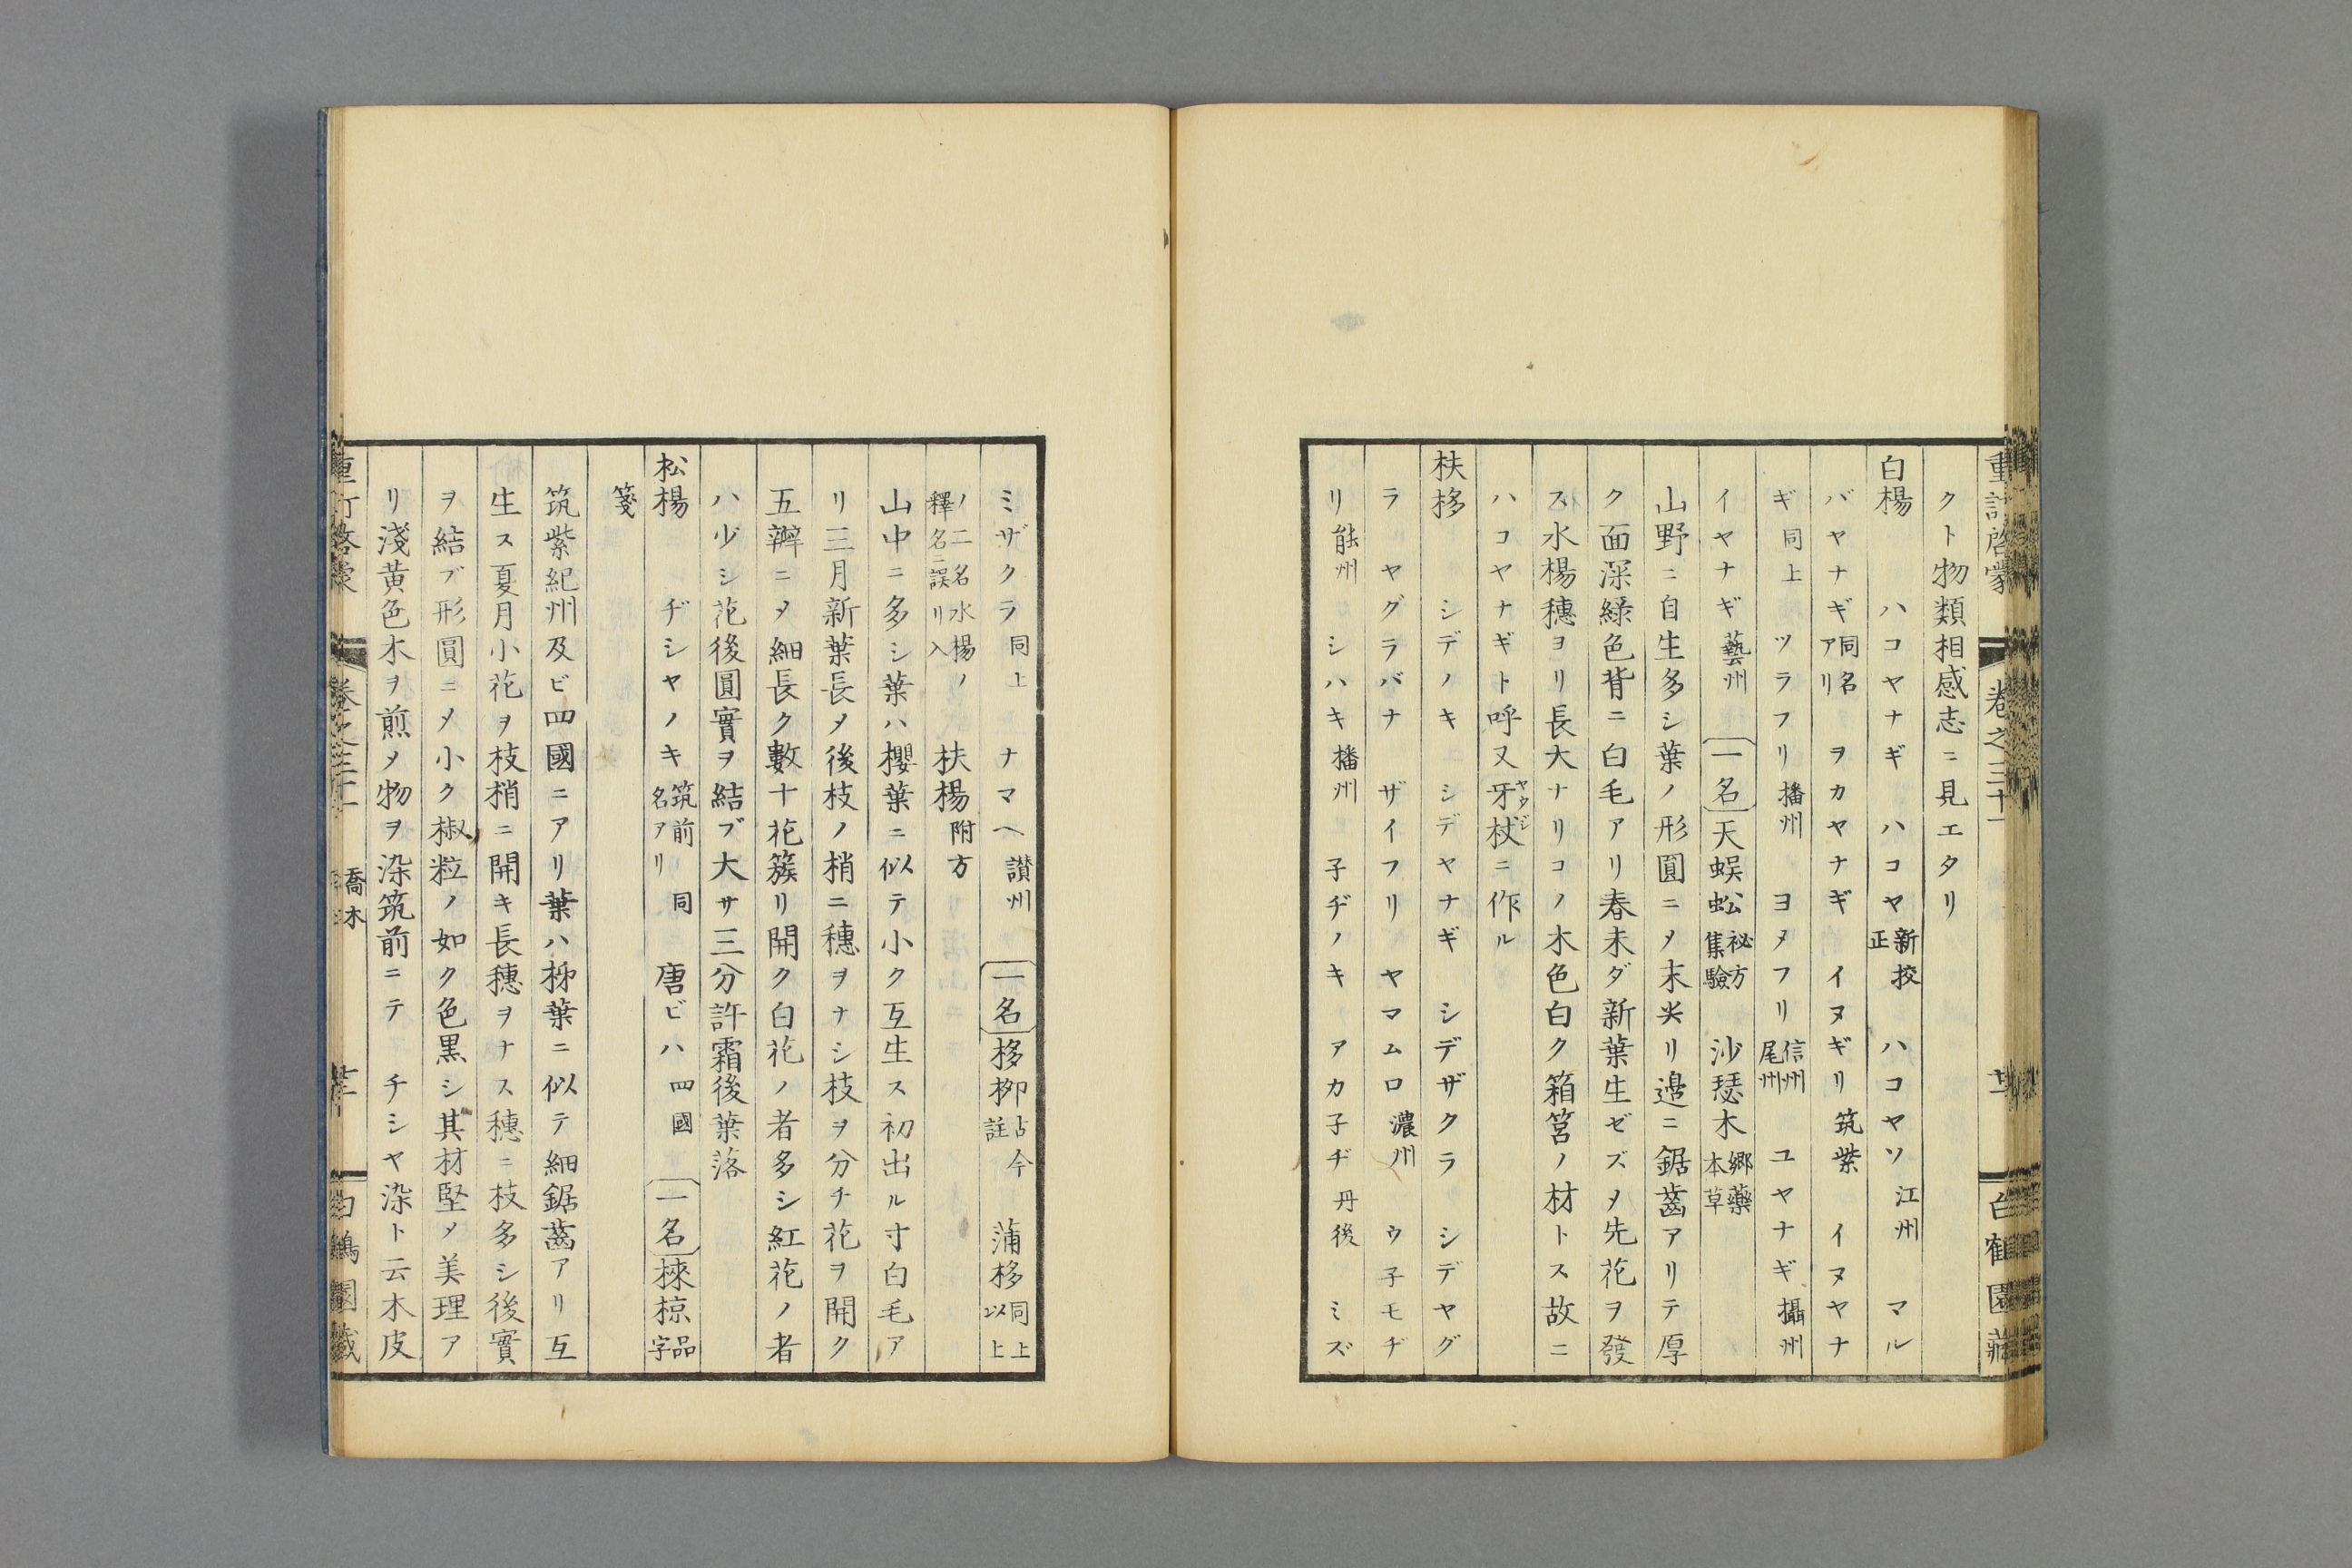 クト物類相感志ニ見エタリ
白楊　ハコヤナギ　ハコヤ新挍正　ハコヤソ江州　マル
バヤナギ同名アリ　ヲカヤナギ　イヌギリ筑紫　イヌヤナ
ギ同上　ツラフリ播州　ヨメフリ信州尾州　ユヤナギ攝州
イヤナギ藝州　一名天蜈蚣祕方集驗　沙瑟木郷藥本草
山野ニ自生多シ葉ノ形圓ニメ末尖リ邉ニ鋸齒アリテ厚
ク面深緑色背ニ白毛アリ春未ダ新葉生ゼズメ先花ヲ發
ス水楊穗ヨリ長大ナリコノ木色白ク箱筥ノ材トス故ニ
ハコヤナギト呼又牙杖ニ作ル
扶栘　シデノキ　シデヤナギ　シデザクラ　シデヤグ
ラ　ヤグラバナ　ザイフリ　ヤマムロ濃州　ウ子モヂ
リ能州　シハキ播州　子ヂノキ　アカ子ヂ丹後　ミズ
重訂啓蒙　卷之三十一　白鶴園藏
ミザクラ同上　ナマヘ讃州　一名栘栁古今註　蒲栘同上以上
ノ二名水楊ノ釋名ニ誤リ入　扶楊附方
山中ニ多シ葉ハ櫻葉ニ似テ小ク互生ス初出ル寸白毛ア
リ三月新葉長メ後枝ノ梢ニ穗ヲナシ枝ヲ分チ花ヲ開ク
五瓣ニメ細長ク數十花簇リ開ク白花ノ者多シ紅花ノ者
ハ少シ花後圓實ヲ結ブ大サ三分許霜後葉落
松楊　ヂシヤノキ筑前同名アリ　唐ビハ四國　一名棶椋品字
箋
筑紫紀州及ビ四國ニアリ葉ハ栁葉ニ似テ細鋸齒アリ互
生ス夏月小花ヲ枝梢ニ開キ長穗ヲナス穗ニ枝多シ後實
ヲ結ブ形圓ニメ小ク椒粒ノ如ク色黒シ其材堅メ美理ア
リ淺黄色木ヲ煎メ物ヲ染筑前ニテ　チシヤ染ト云木皮
喬木